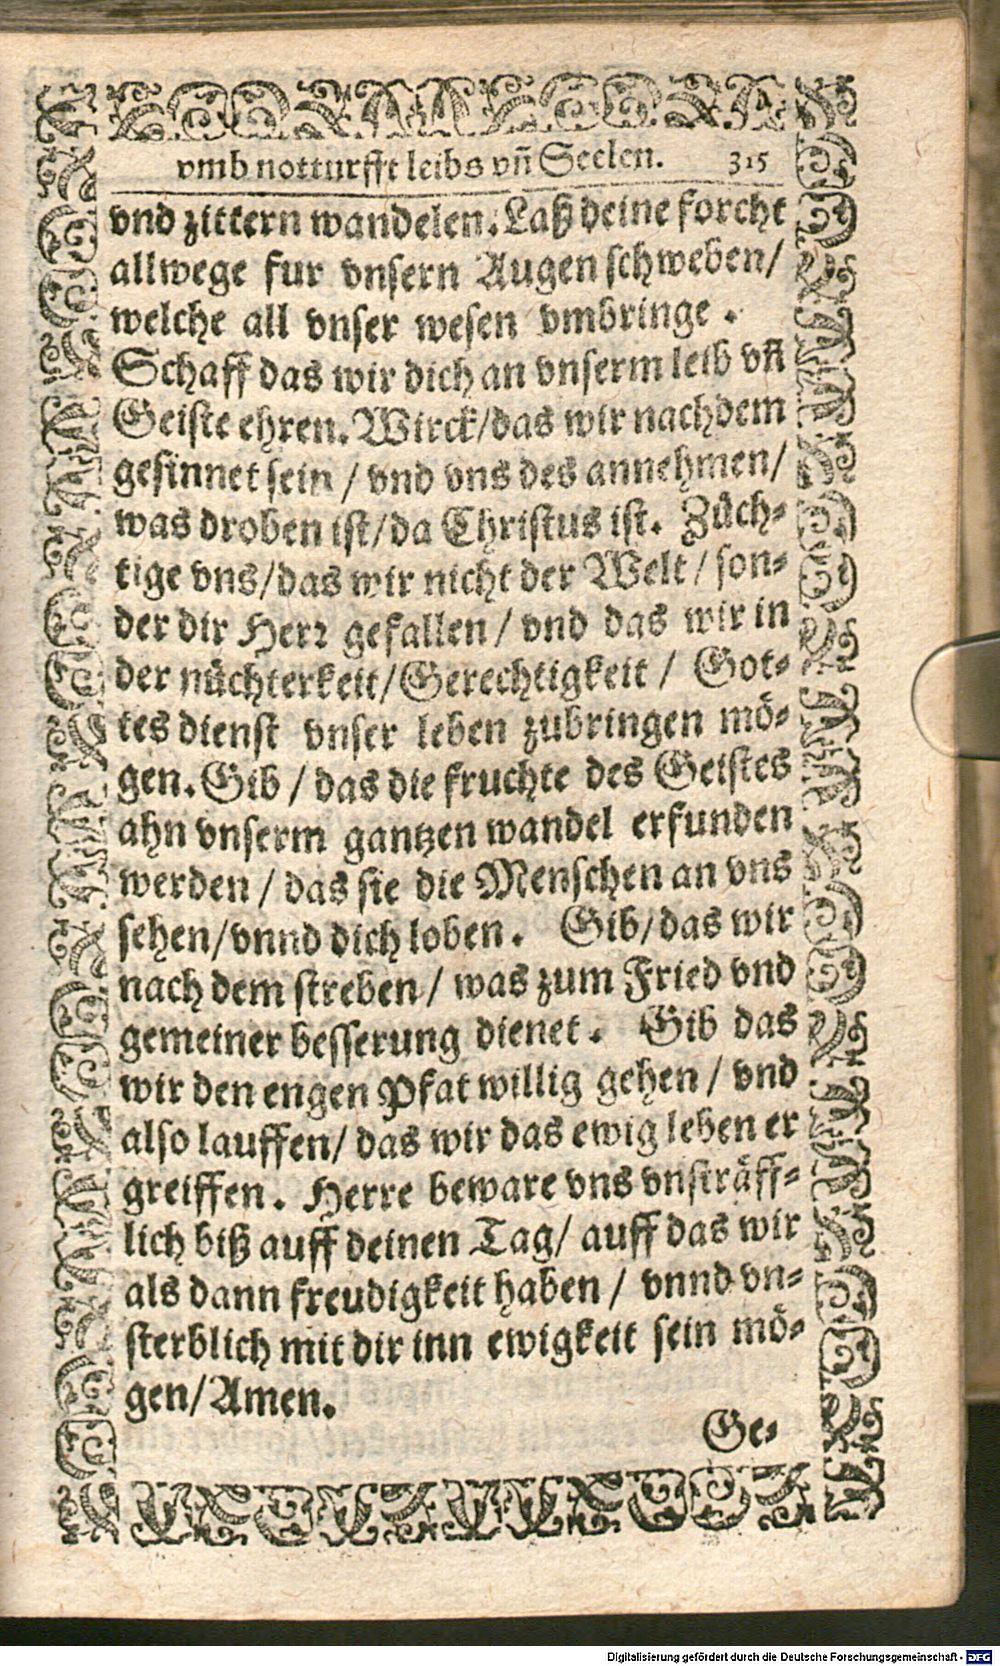 vmb notturfft leibs vñ Seelen. 315
vnd zittern wandelen. Laß deine forcht
allwege fur vnsern Augen schweben/
welche all vnser wesen vmbringe .
Schaff das wir dich an vnserm leib vñ
Geiste ehren. Wirck/das wir nachdem
gesinnet sein / vnd vns des annehmen/
was droben ist/da Christus ist. Züch-
tige vns/das wir nicht der Welt / son-
der dir Herr gefallen / vnd das wir in
der nüchterkeit/Gerechtigkeit / Got-
tes dienst vnser leben zubringen mö-
gen. Gib / das die fruchte des Geistes
ahn vnserm gantzen wandel erfunden
werden / das sie die Menschen an vns
sehen/vnnd dich loben . Gib/das wir
nach dem streben / was zum Fried vnd
gemeiner besserung dienet . Gib das
wir den engen Pfat willig gehen / vnd
also lauffen/ das wir das ewig leben er
greiffen . Herre beware vns vnsträff-
lich biß auff deinen Tag/ auff das wir
als dann freudigkeit haben / vnnd vn-
sterblich mit dir inn ewigkeit sein mö-
gen/Amen.
Ge-
Digitalisierung gefördert durch die Deutsche Forschungsgemeinschaft - DFG